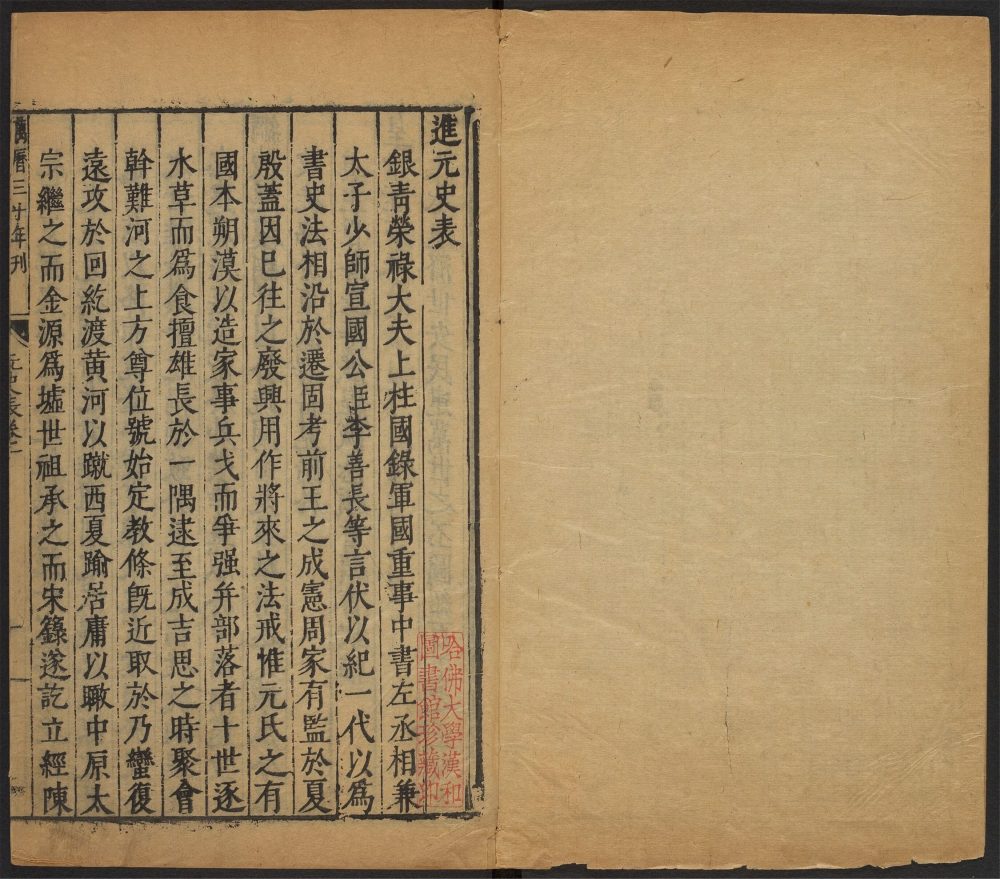 進元史表
銀青榮祿大夫上柱國錄軍國重事中書左丞相兼
太子少師宣國公臣李善長等言伏以紀一代以爲
書史法相沿於遷固考前王之成憲周家有監於夏
殷蓋因已往之廢興用作將來之法戒惟元氏之有
國本朔漠以造家事兵戈而爭强并部落者十世逐
水草而爲食擅雄長於一隅逮至成吉思之時聚會
斡難河之上方尊位號始定教條旣近取於乃蠻復
遠攻於回紇渡黄河以蹴西夏踰居庸以瞰中原太
宗繼之而金源爲墟世祖承之而宋籙遂訖立經陳
萬曆三十年刊
元史表卷一
哈佛大學漢和
圖書館珍藏印